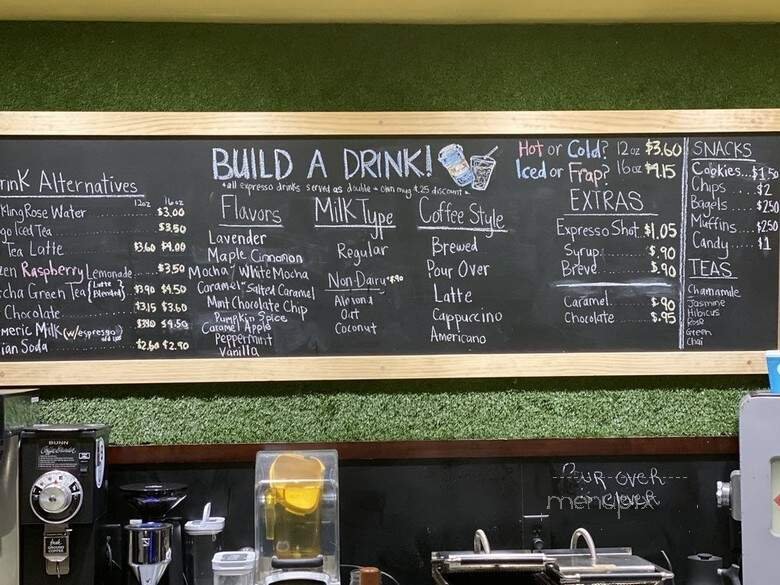 BUILD A DRINK!
*all expresso drinks served as double * own mug $.25 discount
rink Alternatives
12oz 16oz
kling Rose Water $3.00
go Iced Tea $3.50
Tea Latte $3.60 $4.00
zen Raspberry Lemonade $3.50
tcha Green Tea (Latte Blended) $3.90 $4.50
Chocolate $3.15 $3.60
meric Milk (w/espresso)
ian Soda $2.60 $2.90
Flavors
Lavender
Maple Cinnamon
Mocha / White Mocha
Caramel * Salted Caramel
Mint Chocolate Chip
Pumpkin Spice
Caramel Apple
Peppermint
Vanilla
Milk Type
Regular
Non-Dairy +$.90
Almond
Oat
Coconut
Coffee Style
Brewed
Pour Over
Latte
Cappuccino
Americano
Hot or Cold? 12oz $3.60
Iced or Frap? 16oz $4.15
EXTRAS
Expresso Shot $1.05
Syrup $.90
Breve $.90
Caramel $.90
Chocolate $.95
SNACKS
Cookies...$1.50
Chips $2
Bagels $2.50
Muffins $2.50
Candy $1
TEAS
Chamamile
Jasmine
Hibicus
Rose
Green
Chai
BUNN
POUR OVER
menupix